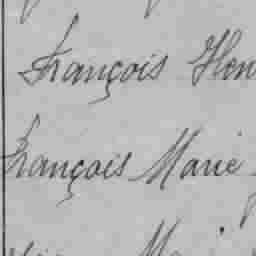 François Hen
François Marie